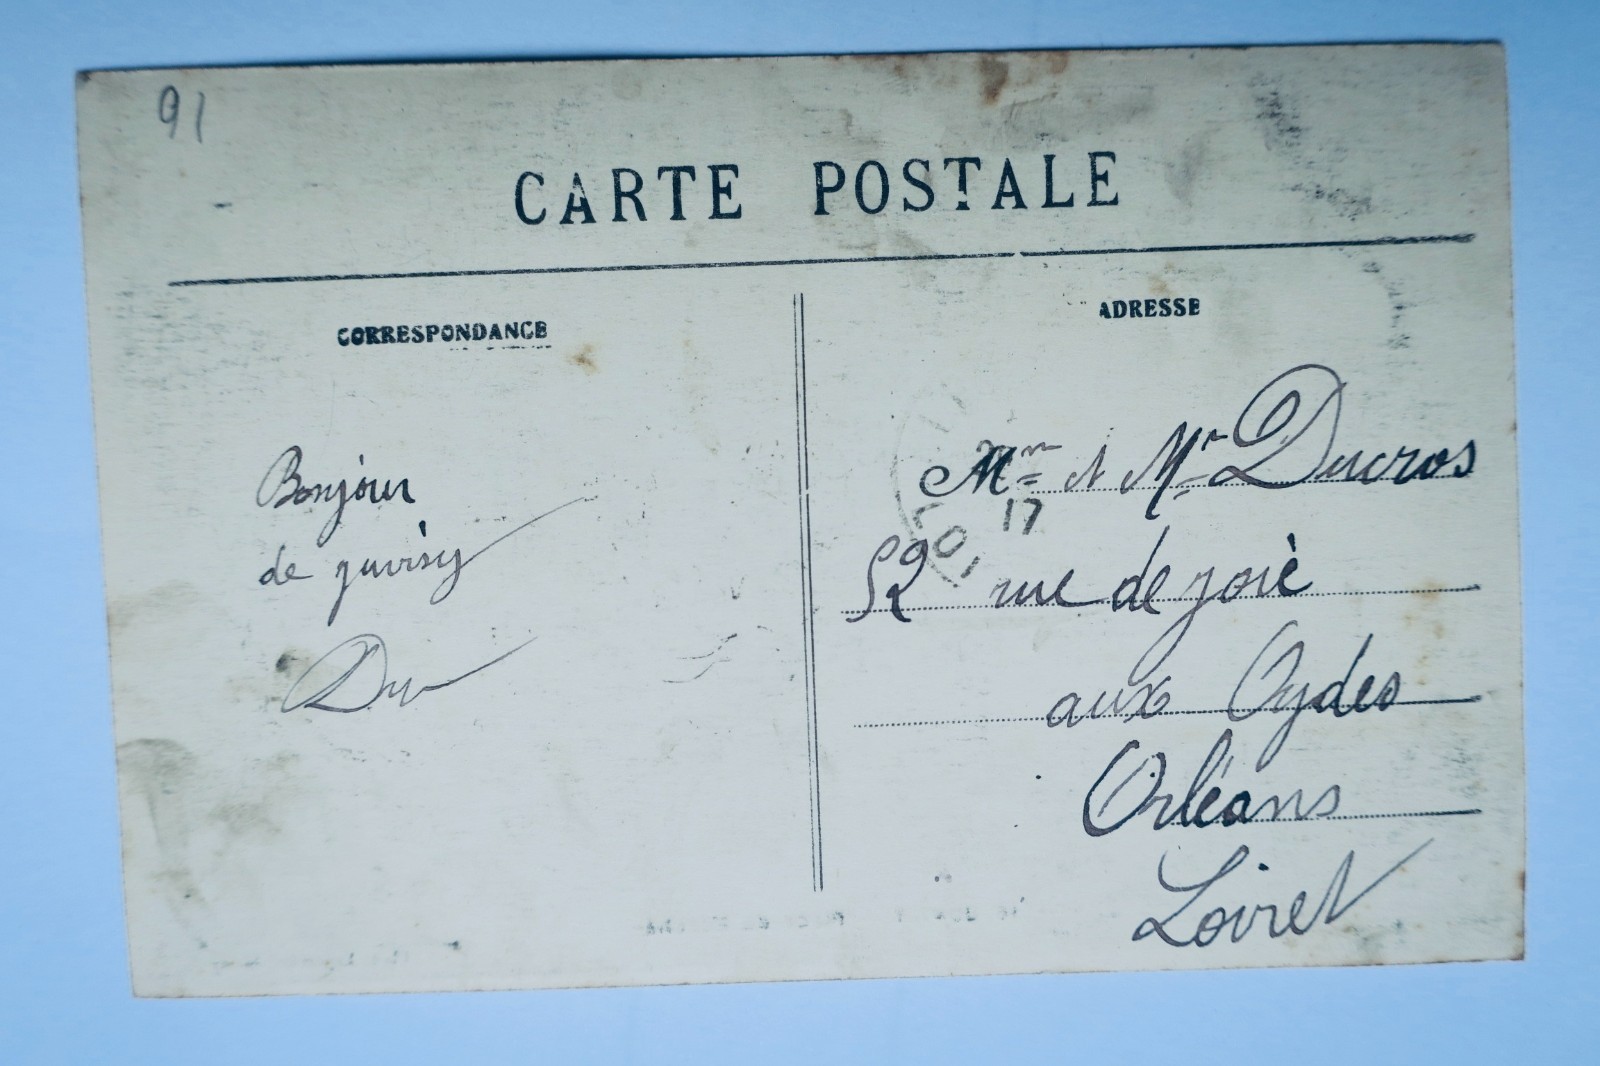 91
CARTE POSTALE
CORRESPONDANCE
ADRESSE
Bonjour
de juvisy
Mme et Mr Ducros
17
52 rue de joie
aux Aydes
Orléans
Loiret